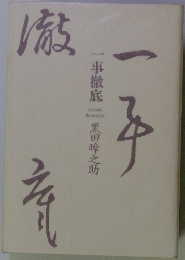 一事
徹底
一事徹底
黒田暲之助